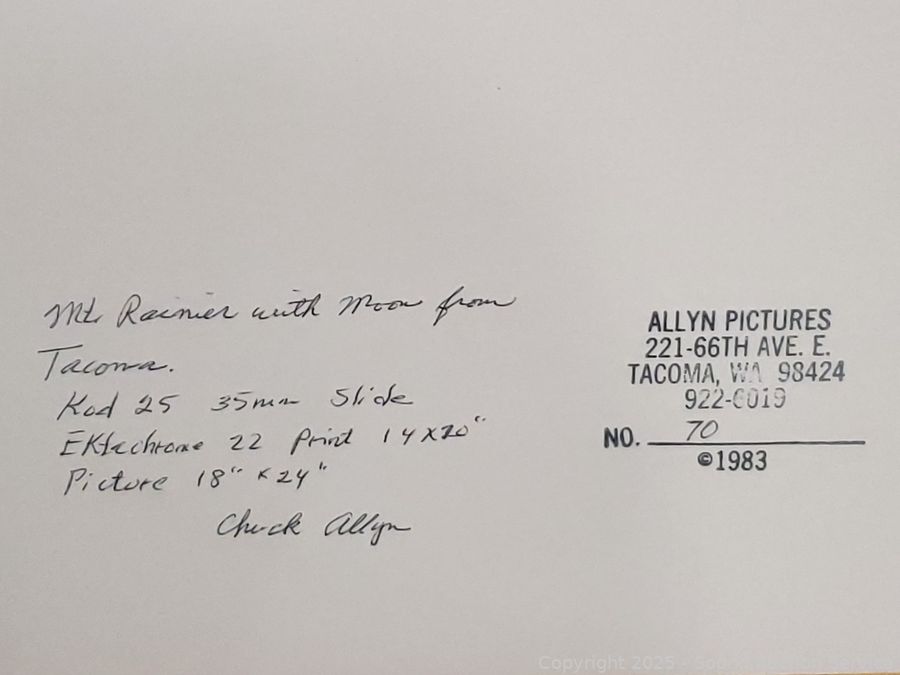 Mt. Rainier with Moon from
Tacoma.
Kod 25 35mm Slide
EKtachrome 22 Print 14x20"
Picture 18" x 24"
Chuck Allyn
ALLYN PICTURES
221-66TH AVE. E.
TACOMA, WA 98424
922-6019
NO. 70
©1983
Copyright 2025 - Auction Service